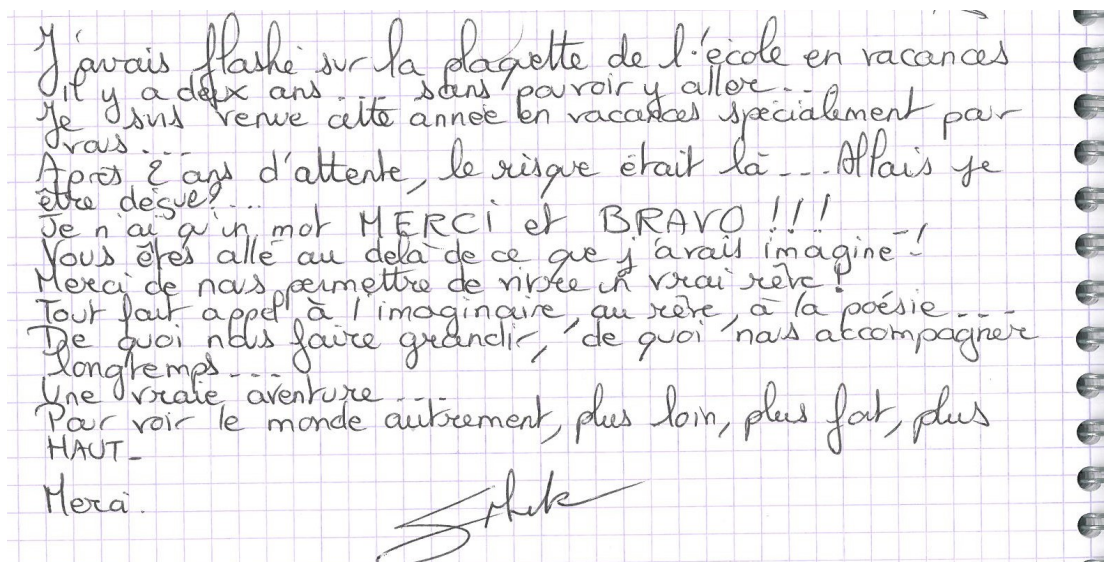 J'avais flashé sur la plaquette de l'école en vacances
il y a deux ans... sans pouvoir y aller...
Je suis venue cette année en vacances spécialement pour
vous...
Après 2 ans d'attente, le risque était là... Allais je
être déçue?...
Je n'ai qu'un mot MERCI et BRAVO !!!
Vous êtes allé au delà de ce que j'avais imaginé !
Merci de nous permettre de vivre un vrai rêve !
Tout fait appel à l'imaginaire, au rêve, à la poésie...
De quoi nous faire grandir, de quoi nous accompagner
longtemps...
Une vraie aventure...
Pour voir le monde autrement, plus loin, plus fort, plus
HAUT_
Merci.